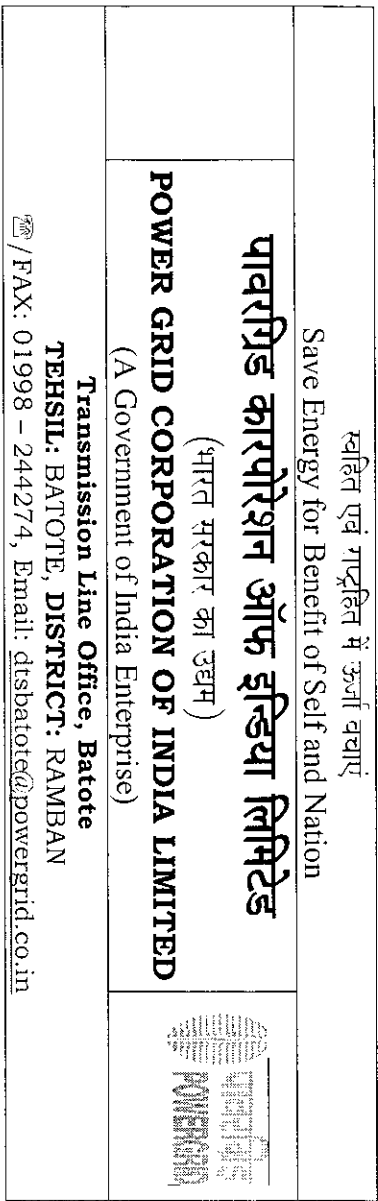 स्वहित एवं राष्ट्रहित में ऊर्जा बचाएं
Save Energy for Benefit of Self and Nation
पावरग्रिड कारपोरेशन ऑफ इन्डिया लिमिटेड
(भारत सरकार का उद्यम)
POWER GRID CORPORATION OF INDIA LIMITED
(A Government of India Enterprise)
पावरग्रिड
POWERGRID
Transmission Line Office, Batote
TEHSIL: BATOTE, DISTRICT: RAMBAN
/FAX: 01998 – 244274, Email: dtsbatote@powergrid.co.in